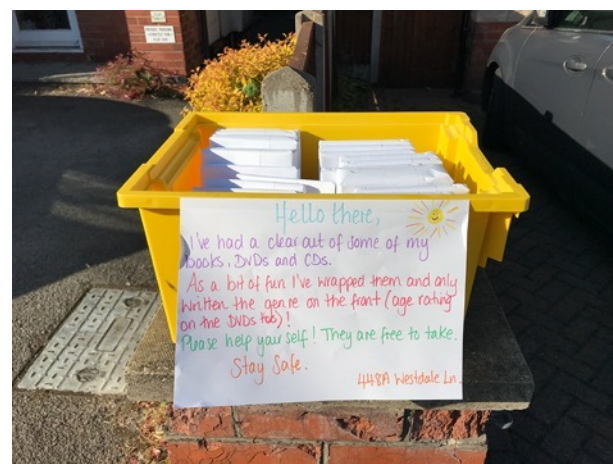 Hello there,
I've had a clear out of some of my
books, DVDs and CDs.
As a bit of fun I've wrapped them and only
written the genre on the front (age rating
on the DVDs too)!
Please help yourself! They are free to take.
Stay Safe.
448A Westdale Ln.